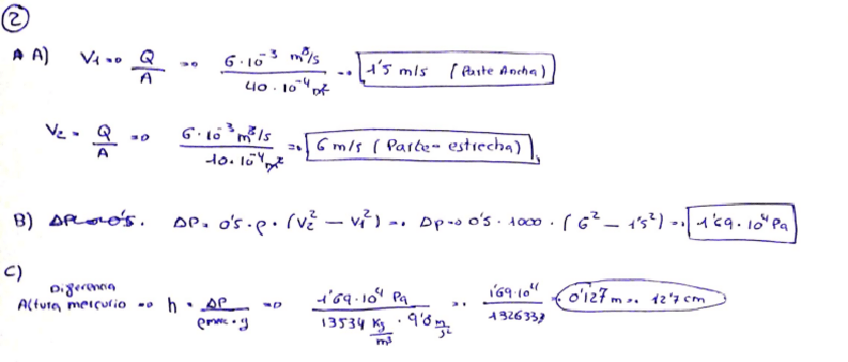 ②
A A) V₁ => Q/A => 6·10⁻³ m³/s / 40·10⁻⁴ m² => 1'5 m/s (Parte Ancha)
V₂ = Q/A => 6·10⁻³ m³/s / 10·10⁻⁴ m² => 6 m/s (Parte- estrecha)
B) ΔP = 0'5 · ρ · (V₂² − V₁²) => Δp => 0'5 · 1000 · (6² − 1'5²) => 1'69 · 10⁴ Pa
C)
Diferencia
Altura mercurio => h = ΔP / ρmerc · g => 1'69·10⁴ Pa / 13534 Kg/m³ · 9'8 m/s² => 1'69·10⁴ / 132633,2 = 0'127 m => 12'7 cm